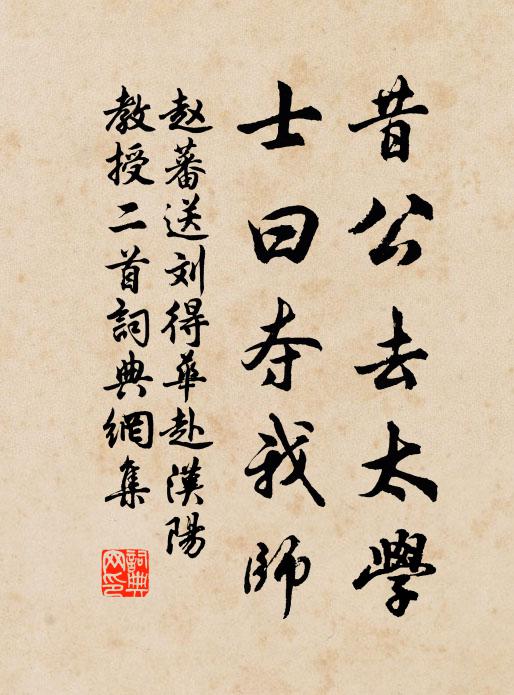 昔公去太學
士曰夺我師
赵蕃送刘得華赴漢陽
教授二首詞典網集
詞典網印